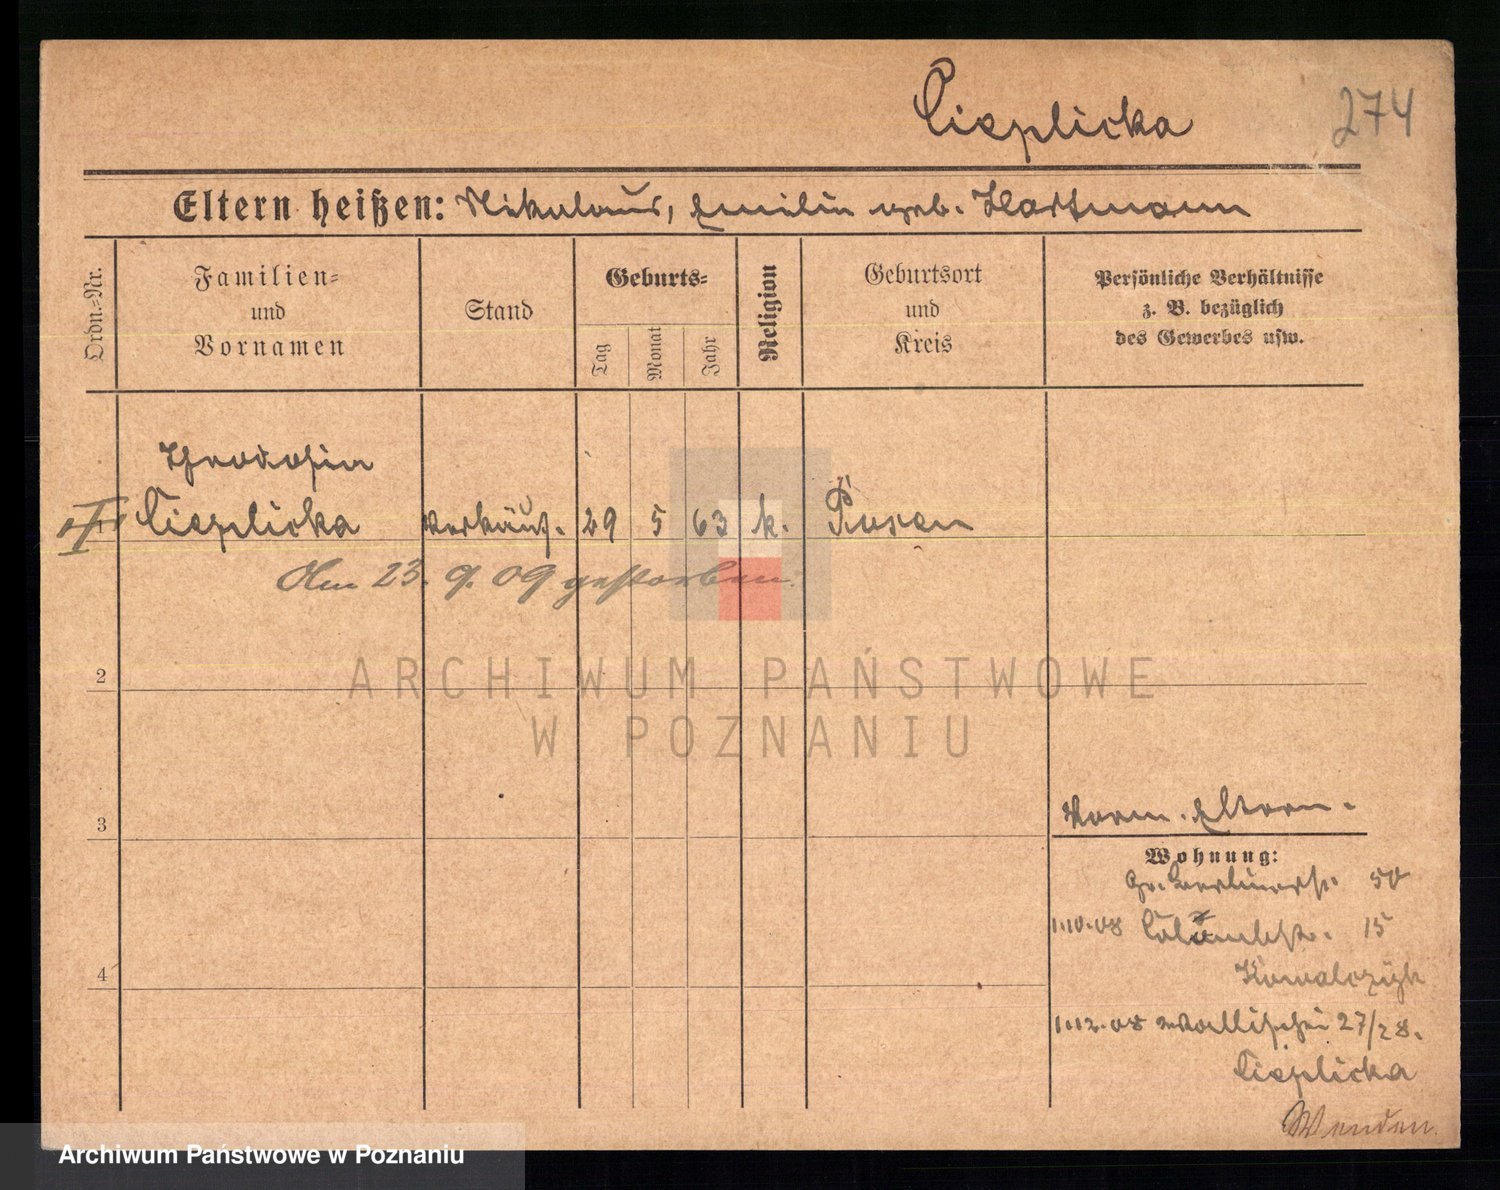 Cieplicka 274
Eltern heißen: Nikolaus, Emilie geb. Hartmann
Ordn.=Nr.
Familien=
und
Vornamen
Stand
Geburts=
Tag
Monat
Jahr
Religion
Geburtsort
und
Kreis
Persönliche Verhältnisse
z. B. bezüglich
des Gewerbes usw.
Theodosia
Cieplicka Verkäuf. 29 5 63 k. Posen
Am 23. 9. 09 gestorben.
2
3
4
Vorm. Eltern.
Wohnung:
Gr. Berlinerstr. 50
1.10.08 15
Kowalczyk
1.12.08 Wallischei 27/28.
Cieplicka
Wenden.
ARCHIWUM PAŃSTWOWE
W POZNANIU
Archiwum Państwowe w Poznaniu